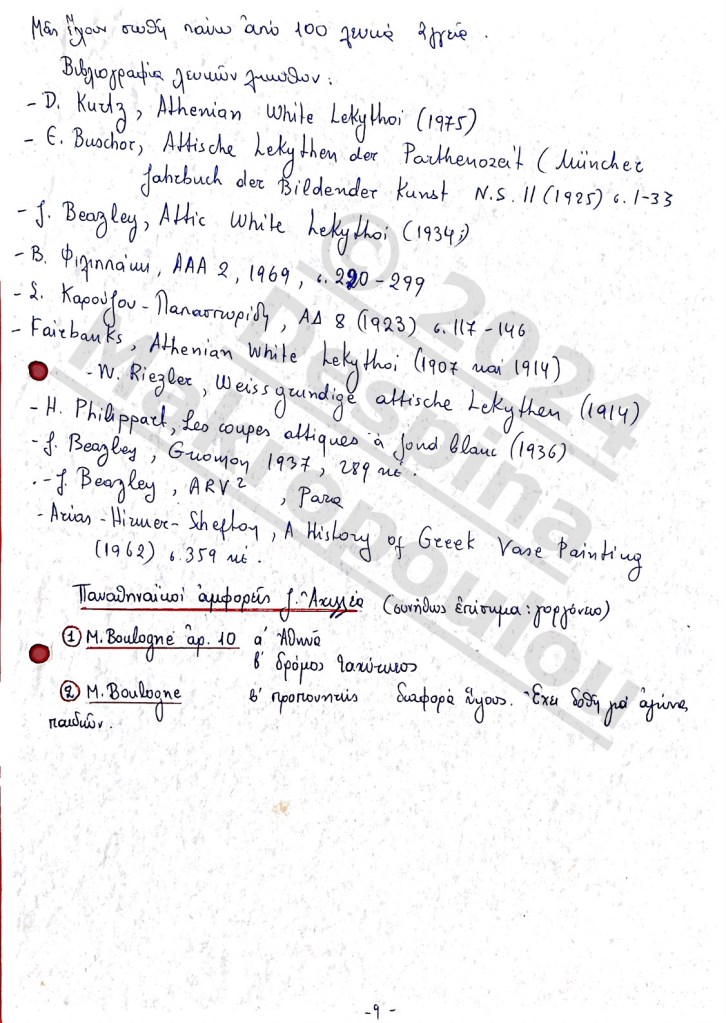 Μᾶς ἔχουν σωθῆ πάνω ἀπό 100 λευκά ἀγγεῖα.
Βιβλιογραφία λευκῶν ληκύθων:
- D. Kurtz, Athenian White Lekythoi (1975)
- E. Buschor, Attische Lekythen der Parthenozeit (Müncher
Jahrbuch der Bildender Kunst N.S. II (1925) σ. 1-33
- J. Beazley, Attic White Lekythoi (1934;)
- Β. Φιλιππάκη, ΑΑΑ 2, 1969, σ. 220-299
- Σ. Καρούζου-Παπασπυρίδη, ΑΔ 8 (1923) σ. 117-146
- Fairbanks, Athenian White Lekythoi (1907 καί 1914)
- W. Riezler, Weissgrundige attische Lekythen (1914)
- H. Philippart, Les coupes attiques à fond blanc (1936)
- J. Beazley, Gnomon 1937, 289 κἑ.
- J. Beazley, ARV², Para
- Arias-Hirmer-Shefton, A History of Greek Vase Painting
(1962) σ. 359 κἑ.
Παναθηναϊκοί ἀμφορεῖς ζ. Ἀχιλλέα (συνήθως ἐπίσημα: γοργόνειο)
① M. Boulogne ἀρ. 10 α' Ἀθηνᾶ
β' δρόμος ταχύτητος
② M. Boulogne β' προπονητής διαφορά ὕψους. Ἔχει δοθῆ γιά ἀγῶνες
παιδιῶν.
-9-
© 2024
Despina
Makropoulou